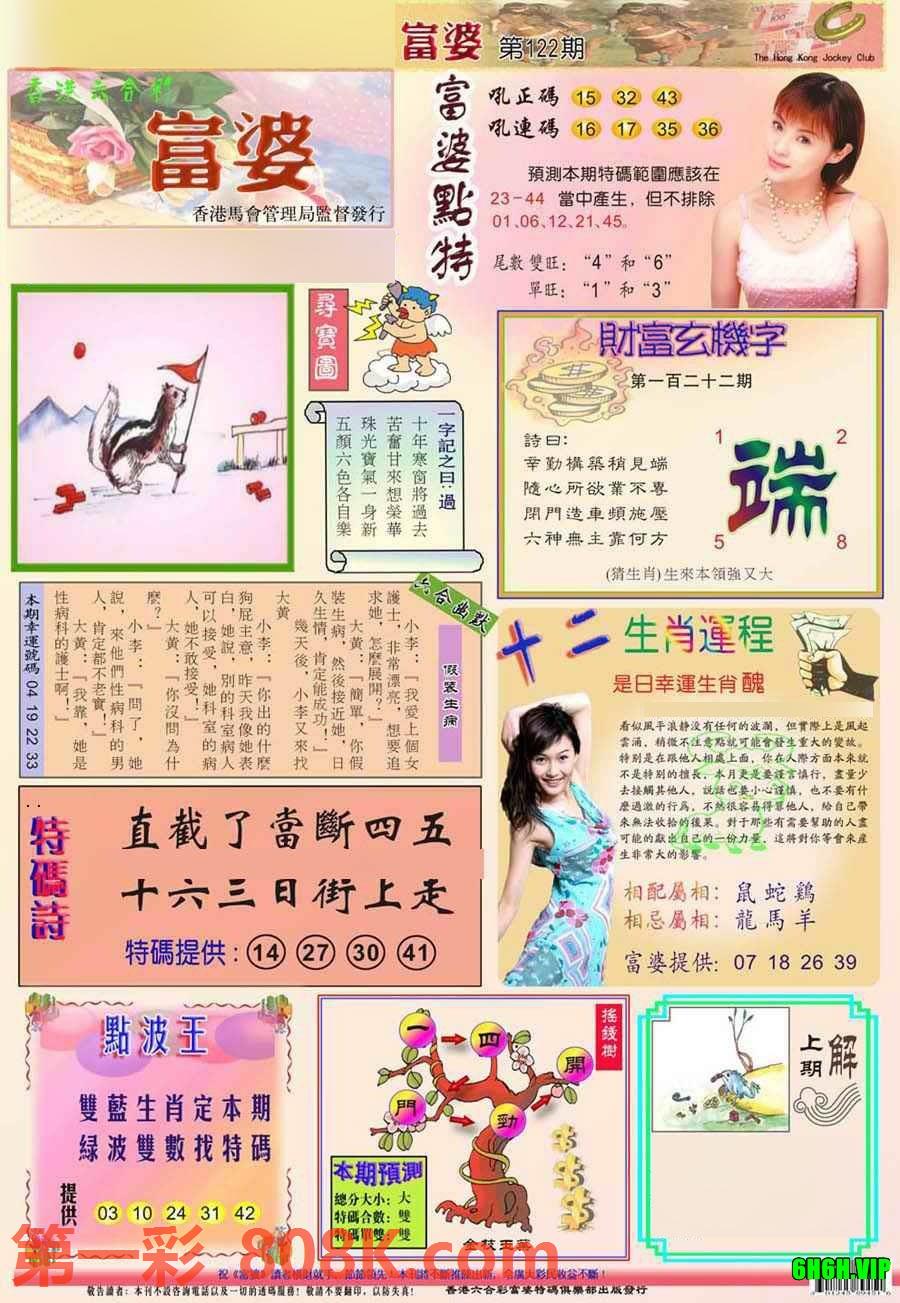 富婆 第122期
The Hong Kong Jockey Club
香港六合彩
富婆
香港馬會管理局監督發行
富婆點特
吼正碼 15 32 43
吼連碼 16 17 35 36
預測本期特碼範圍應該在
23-44 當中產生，但不排除
01、06、12、21、45。
尾數雙旺：“4”和“6”
單旺：“1”和“3”
尋寶圖
一字記之曰：過
十年寒窗將過去
苦奮甘來想榮華
珠光寶氣一身新
五顏六色各自樂
財富玄機字
第一百二十二期
詩曰：
幸勤構築稍見端
隨心所欲業不專
閉門造車頻施壓
六神無主靠何方
端
1 2
5 8
(猜生肖)生來本領強又大
六合幽默
假裝生病
小李：『我愛上個女
護士，非常漂亮，想要追
求她，怎麼展開？』
大黃：『簡單，你假
裝生病，然後接近她，日
久生情，肯定能成功！』
幾天後，小李又來找
大黃
小李：『你出的什麼
狗屁主意，昨天我像她表
白，她說，別的科室病人
可以接受，她科室的病
人，她不敢接受！』
大黃：『你沒問為什
麼？』
小李：『問了，她
說，來他們性病科的男
人，肯定都不老實！』
大黃：『我靠，她是
性病科的護士啊！』
本期幸運號碼 04 19 22 33
十二生肖運程
是日幸運生肖 醜
看似風平浪静没有任何的波瀾，但實際上是風起
雲涌，稍微不注意點就可能會發生重大的變故。
特别是在跟他人相處上面，你在人際方面本來就
不是特别的擅長，本月更是要謹言慎行，盡量少
去接觸其他人，説話也要小心謹慎，也不要有什
麽過激的行爲，不然很容易得罪他人，給自己帶
來無法收拾的後果。對于那些有需要幫助的人盡
可能的獻出自己的一份力量，這將對你等會來産
生非常大的影響。
相配屬相：鼠 蛇 鷄
相忌屬相：龍 馬 羊
富婆提供：07 18 26 39
特碼詩
直截了當斷四五
十六三日街上走
特碼提供：14 27 30 41
點波王
雙藍生肖定本期
綠波雙數找特碼
提供 03 10 24 31 42
搖錢樹
一 四 開
門 勁
本期預測
總分大小：大
特碼合數：雙
特碼單雙：雙
金枝玉葉
上期解
第一彩 808K.com
6H6H.VIP
祝《富婆》讀者橫財就手，節節領先！本刊將不斷推陳出新，令廣大彩民收益不斷！
敬告讀者：本刊不設咨詢電話以及一切的透碼服務！敬請不要翻印，以防失真！
香港六合彩富婆特碼俱樂部出版發行